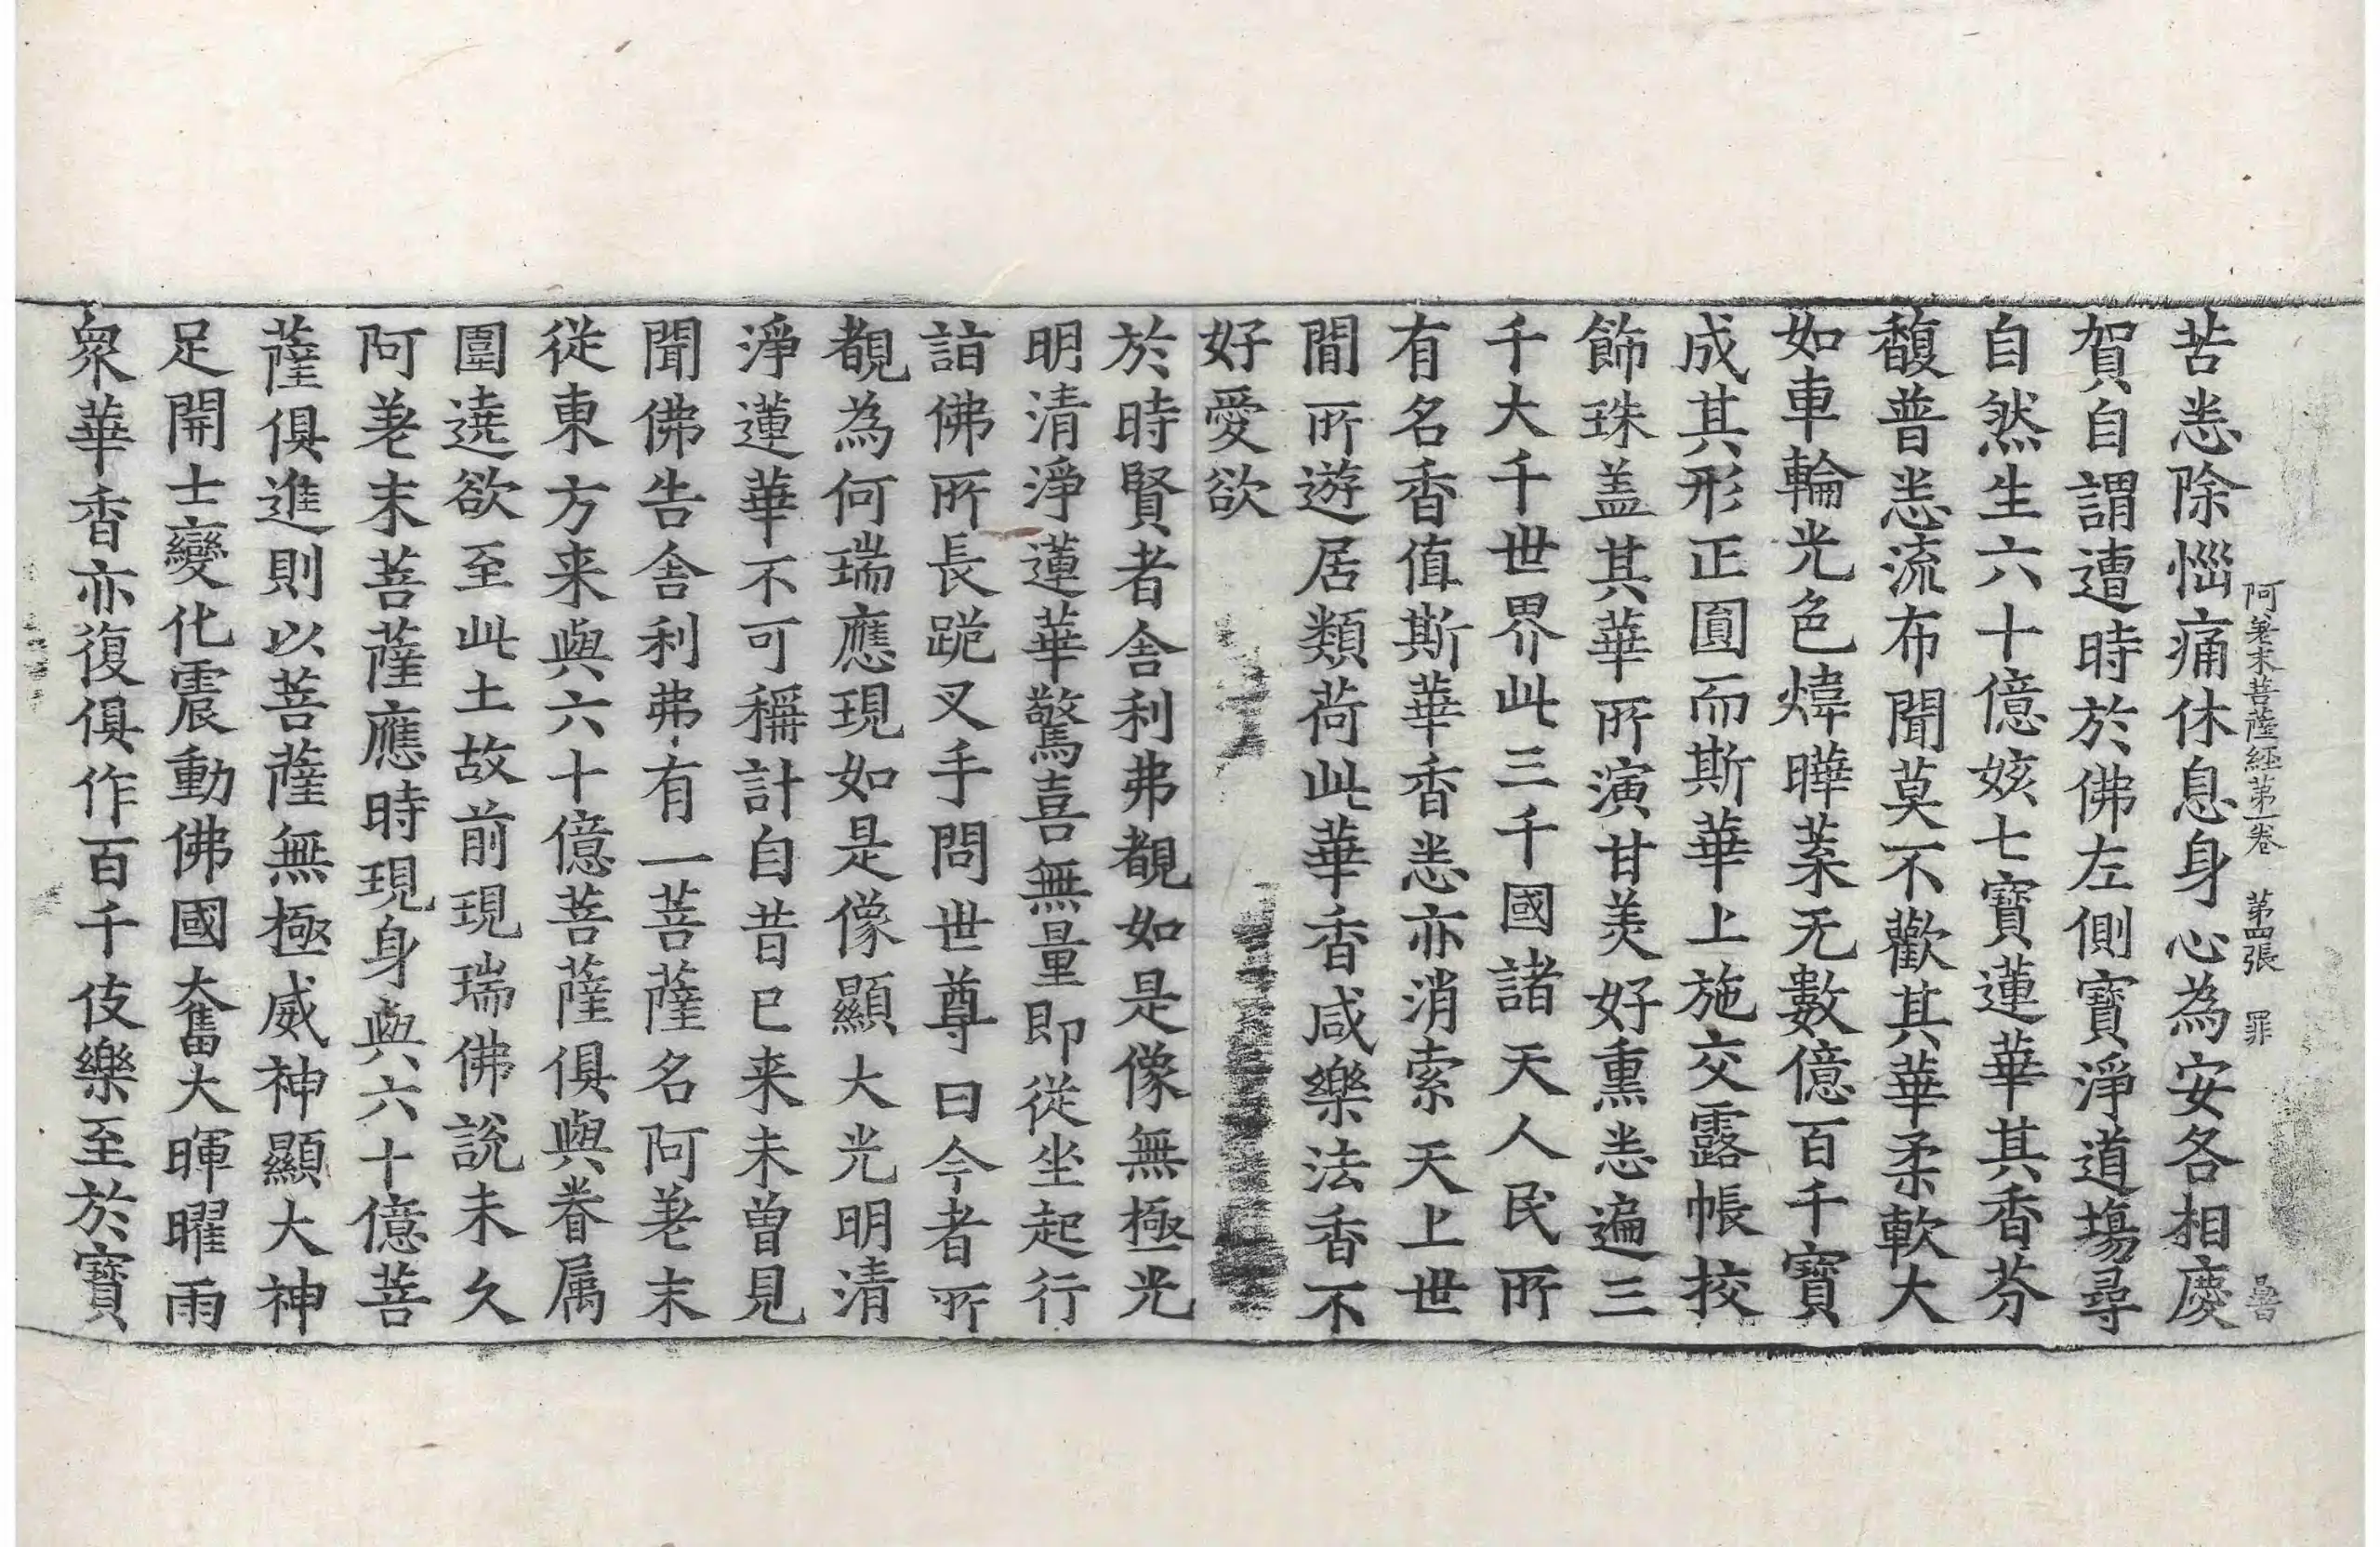 阿差末菩薩經第一卷　第四張　罪
苦恙除惱痛休息身心為安各相慶
賀自謂遭時於佛左側寶淨道場尋
自然生六十億姟七寶蓮華其香芬
馥普恙流布聞莫不歡其華柔軟大
如車輪光色煒曄葉无數億百千寶
成其形正圓而斯華上施交露帳挍
飾珠盖其華所演甘美好熏恙遍三
千大千世界此三千國諸天人民所
有名香值斯華香恙亦消索天上世
閒所遊居類荷此華香咸樂法香不
好愛欲
於時賢者舍利弗覩如是像無極光
明清淨蓮華驚喜無量即從坐起行
詣佛所長跪叉手問世尊曰今者所
覩為何瑞應現如是像顯大光明清
淨蓮華不可稱計自昔已来未曾見
聞佛告舍利弗有一菩薩名阿差末
從東方来與六十億菩薩俱與眷属
圍遶欲至此土故前現瑞佛說未久
阿差末菩薩應時現身與六十億菩
薩俱進則以菩薩無極威神顯大神
足開士變化震動佛國奮大暉曜雨
衆華香亦復俱作百千伎樂至於寶